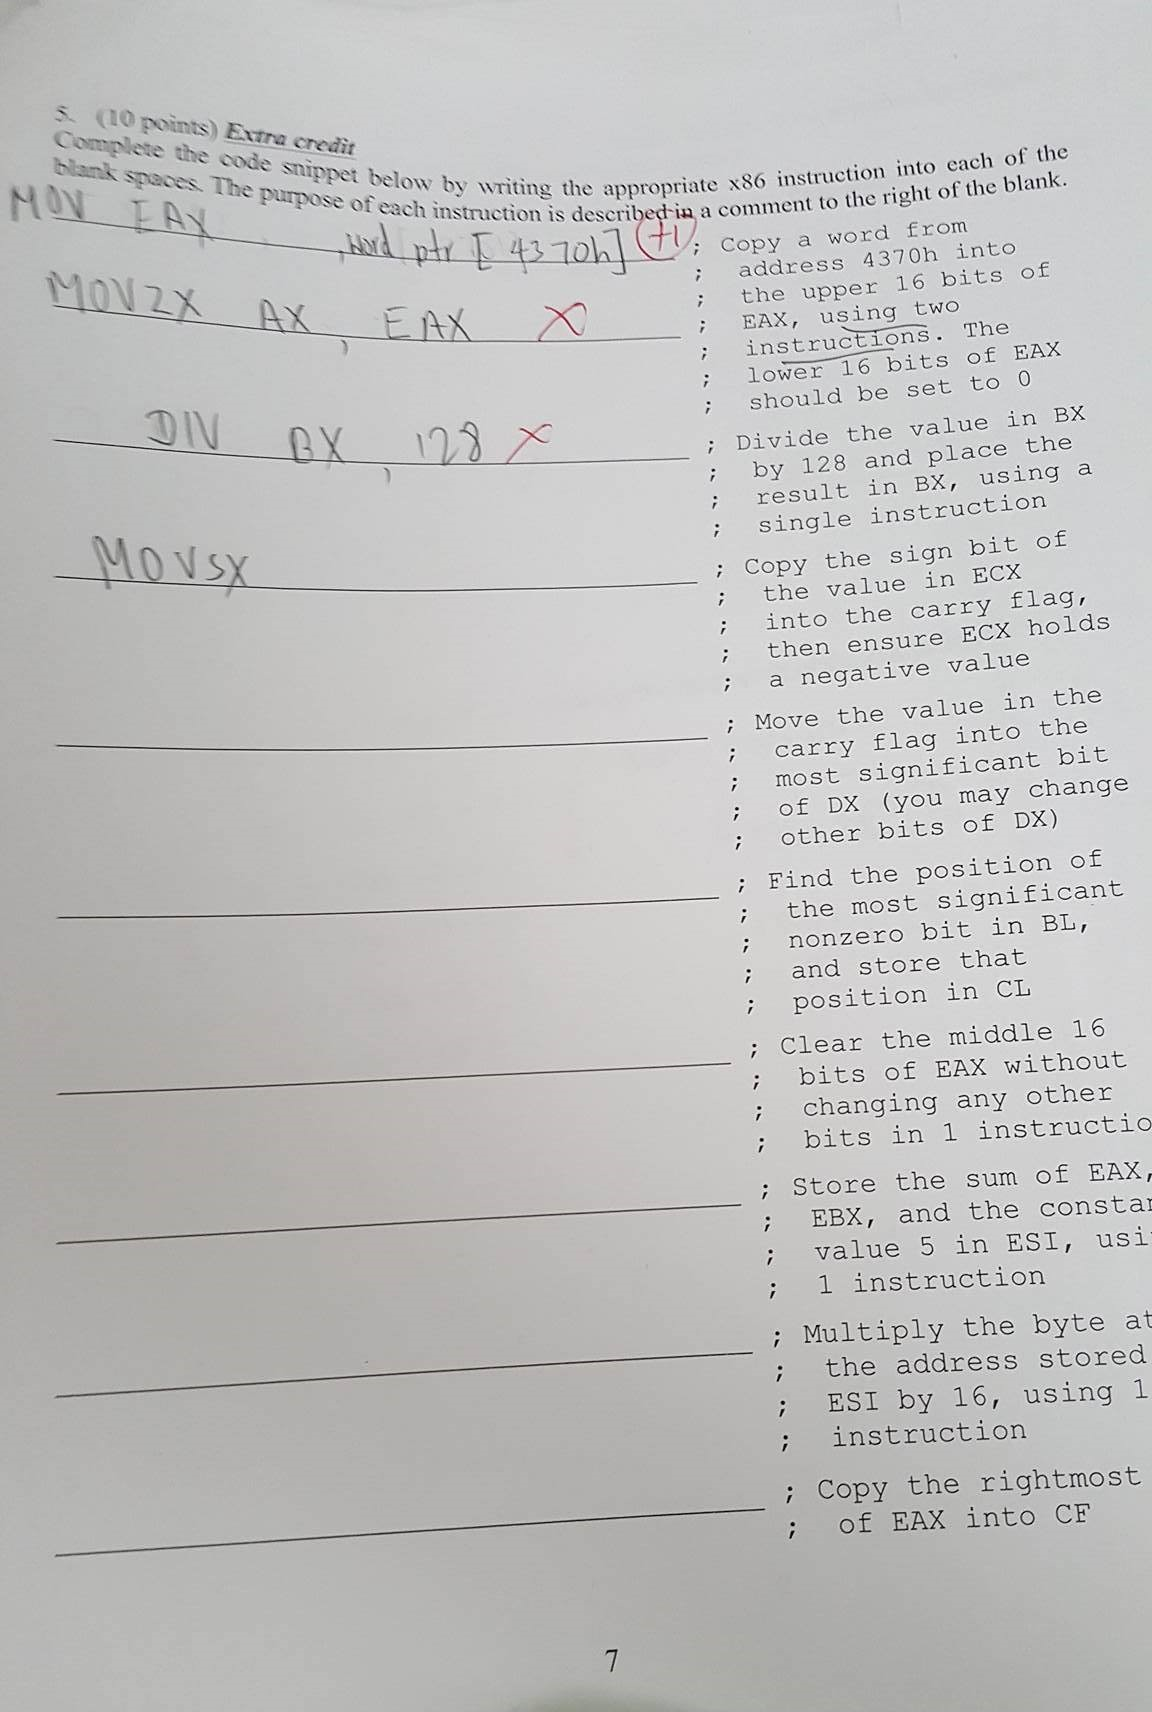 5. (10 points) Extra credit
Complete the code snippet below by writing the appropriate x86 instruction into each of the
blank spaces. The purpose of each instruction is described in a comment to the right of the blank.
MOV EAX, word ptr [4370h] +1 ; Copy a word from
; address 4370h into
; the upper 16 bits of
MOVZX AX, EAX X ; EAX, using two
; instructions. The
; lower 16 bits of EAX
; should be set to 0
DIV BX, 128 X ; Divide the value in BX
; by 128 and place the
; result in BX, using a
; single instruction
MOVSX ; Copy the sign bit of
; the value in ECX
; into the carry flag,
; then ensure ECX holds
; a negative value
; Move the value in the
; carry flag into the
; most significant bit
; of DX (you may change
; other bits of DX)
; Find the position of
; the most significant
; nonzero bit in BL,
; and store that
; position in CL
; Clear the middle 16
; bits of EAX without
; changing any other
; bits in 1 instructio
; Store the sum of EAX,
; EBX, and the constan
; value 5 in ESI, usi
; 1 instruction
; Multiply the byte at
; the address stored
; ESI by 16, using 1
; instruction
; Copy the rightmost
; of EAX into CF
7